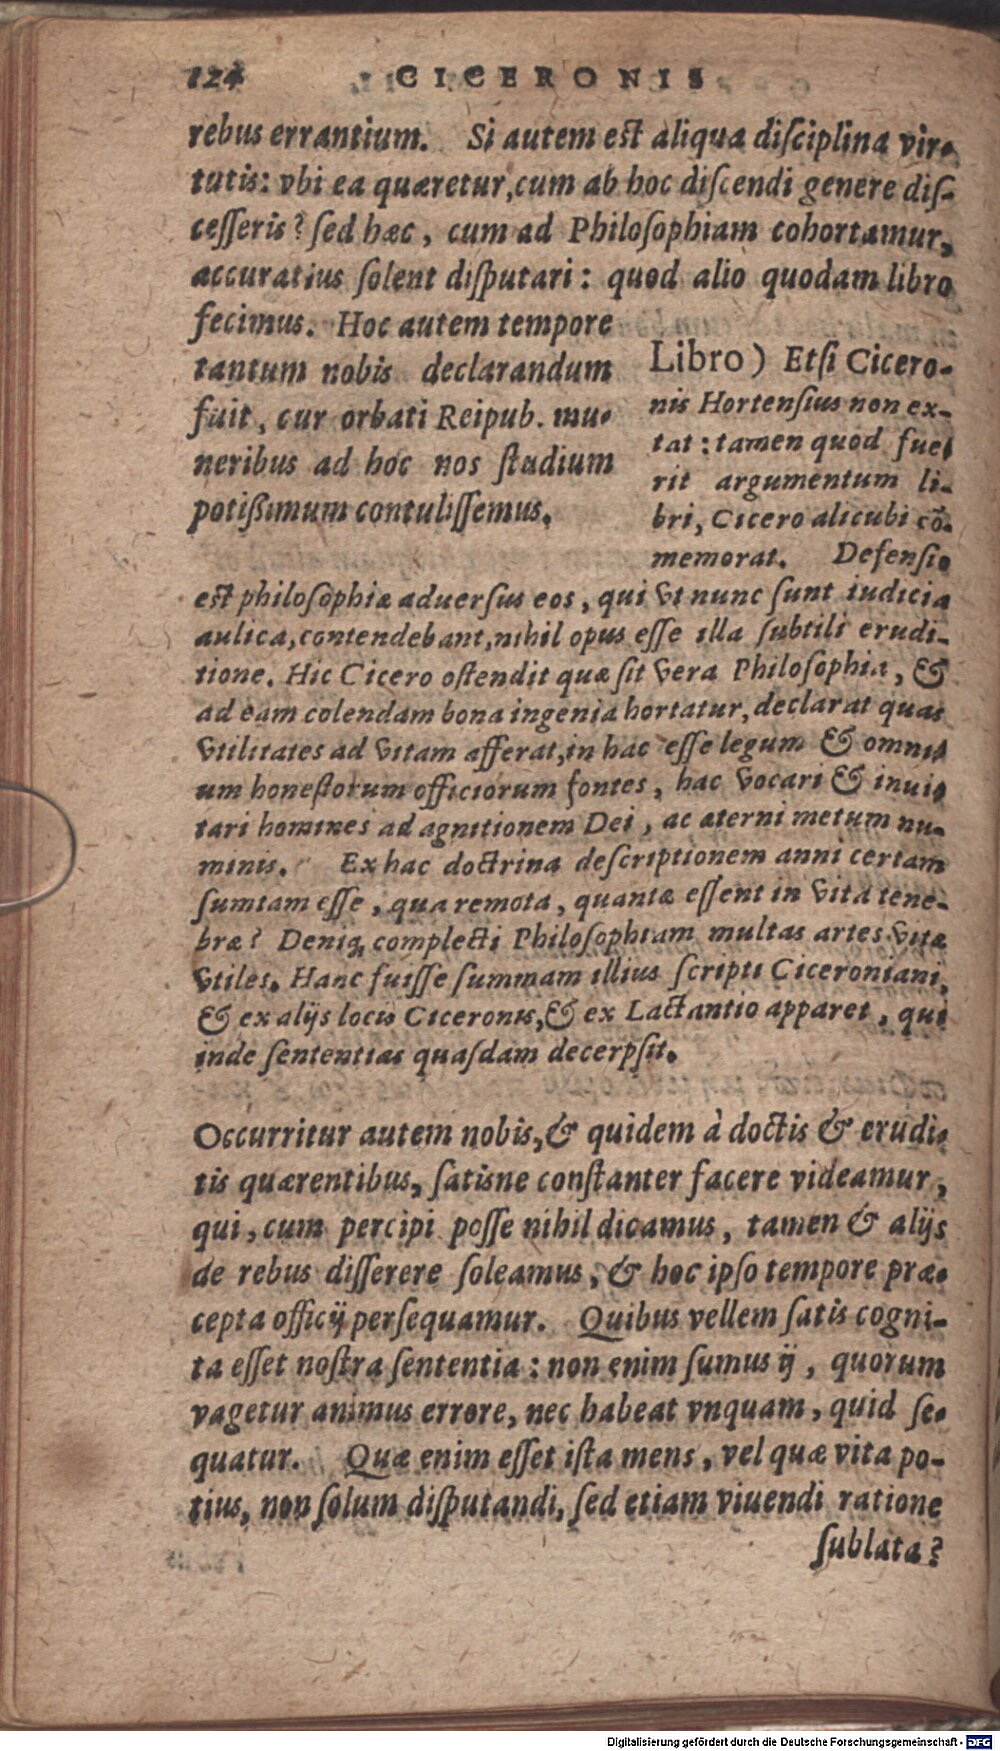 124 CICERONIS
rebus errantium. Si autem est aliqua disciplina vir-
tutis: vbi ea quæretur, cum ab hoc discendi genere dis-
cesseris? sed hæc, cum ad Philosophiam cohortamur,
accuratius solent disputari: quod alio quodam libro
fecimus. Hoc autem tempore
tantum nobis declarandum
fuit, cur orbati Reipub. mu-
neribus ad hoc nos studium
potißimum contulissemus.
Libro) Etsi Cicero-
nis Hortensius non ex-
tat: tamen quod fue-
rit argumentum li-
bri, Cicero alicubi cō-
memorat. Defensio
est philosophiæ aduersus eos, qui vt nunc sunt iudicia
aulica, contendebant, nihil opus esse illa subtili erudi-
tione. Hic Cicero ostendit quæ sit vera Philosophia, &
ad eam colendam bona ingenia hortatur, declarat quas
vtilitates ad vitam afferat, in hac esse legum & omni-
um honestorum officiorum fontes, hac vocari & inui-
tari homines ad agnitionem Dei, ac æterni metum nu-
minis. Ex hac doctrina descriptionem anni certam
sumtam esse, qua remota, quantæ essent in vita tene-
bræ? Deniq; complecti Philosophiam multas artes vitæ
vtiles. Hanc fuisse summam illius scripti Ciceroniani,
& ex alijs locis Ciceronis, & ex Lactantio apparet, qui
inde sententias quasdam decerpsit.
Occurritur autem nobis, & quidem à doctis & erudi-
tis quærentibus, satisne constanter facere videamur,
qui, cum percipi posse nihil dicamus, tamen & alijs
de rebus disserere soleamus, & hoc ipso tempore præ-
cepta officij persequamur. Quibus vellem satis cogni-
ta esset nostra sententia: non enim sumus ij, quorum
vagetur animus errore, nec habeat vnquam, quid se-
quatur. Quæ enim esset ista mens, vel quæ vita po-
tius, non solum disputandi, sed etiam viuendi ratione
sublata?
Digitalisierung gefördert durch die Deutsche Forschungsgemeinschaft - DFG